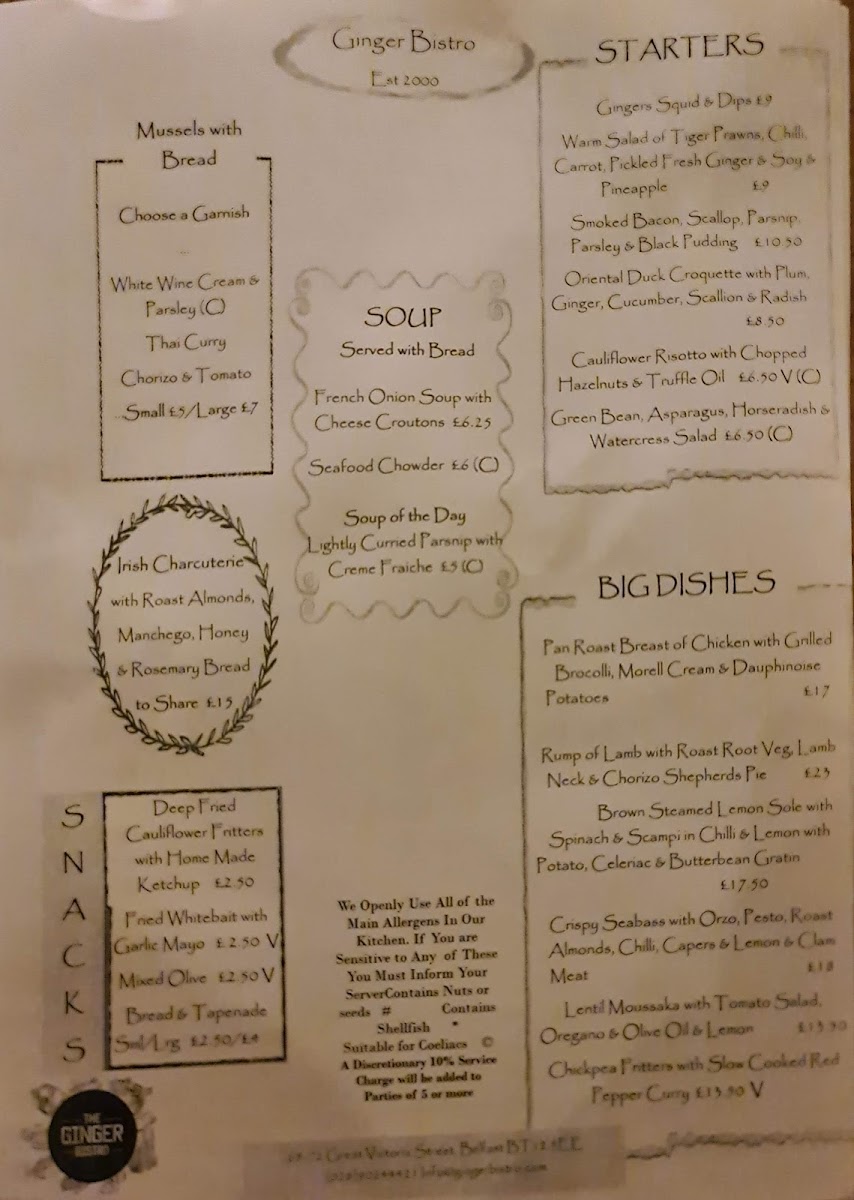 Ginger Bistro
Est 2000
Mussels with
Bread
Choose a Garnish
White Wine Cream &
Parsley (C)
Thai Curry
Chorizo & Tomato
Small £5/Large £7
Irish Charcuterie
with Roast Almonds,
Manchego, Honey
& Rosemary Bread
to Share £15
SNACKS
Deep Fried
Cauliflower Fritters
with Home Made
Ketchup £2.50
Fried Whitebait with
Garlic Mayo £2.50 V
Mixed Olive £2.50 V
Bread & Tapenade
Sml/Lrg £2.50/£4
THE
GINGER
BISTRO
SOUP
Served with Bread
French Onion Soup with
Cheese Croutons £6.25
Seafood Chowder £6 (C)
Soup of the Day
Lightly Curried Parsnip with
Creme Fraiche £5 (C)
We Openly Use All of the
Main Allergens In Our
Kitchen. If You are
Sensitive to Any of These
You Must Inform Your
ServerContains Nuts or
seeds # Contains
Shellfish *
Suitable for Coeliacs ©
A Discretionary 10% Service
Charge will be added to
Parties of 5 or more
STARTERS
Gingers Squid & Dips £9
Warm Salad of Tiger Prawns, Chilli,
Carrot, Pickled Fresh Ginger & Soy &
Pineapple £9
Smoked Bacon, Scallop, Parsnip,
Parsley & Black Pudding £10.50
Oriental Duck Croquette with Plum,
Ginger, Cucumber, Scallion & Radish
£8.50
Cauliflower Risotto with Chopped
Hazelnuts & Truffle Oil £6.50 V (C)
Green Bean, Asparagus, Horseradish &
Watercress Salad £6.50 (C)
BIG DISHES
Pan Roast Breast of Chicken with Grilled
Brocolli, Morell Cream & Dauphinoise
Potatoes £17
Rump of Lamb with Roast Root Veg, Lamb
Neck & Chorizo Shepherds Pie £23
Brown Steamed Lemon Sole with
Spinach & Scampi in Chilli & Lemon with
Potato, Celeriac & Butterbean Gratin
£17.50
Crispy Seabass with Orzo, Pesto, Roast
Almonds, Chilli, Capers & Lemon & Clam
Meat £18
Lentil Moussaka with Tomato Salad,
Oregano & Olive Oil & Lemon £13.50
Chickpea Fritters with Slow Cooked Red
Pepper Curry £13.50 V
Great Victoria Street, Belfast